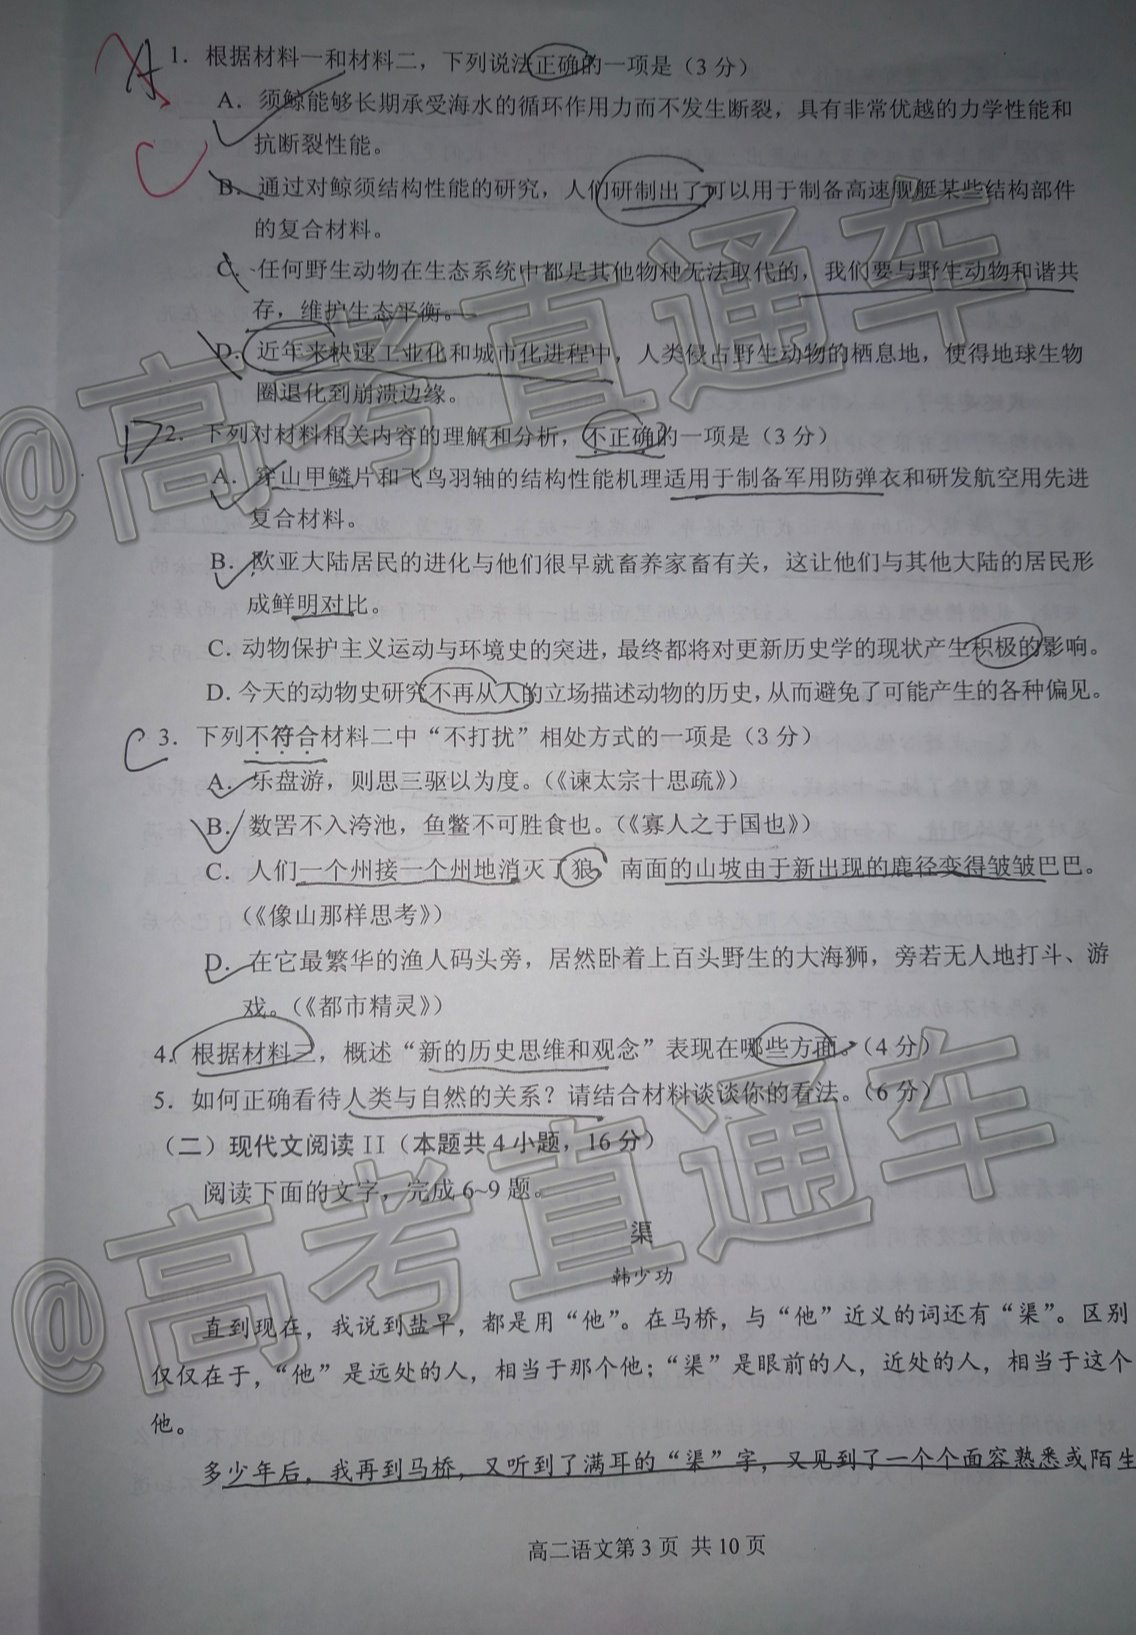 A
C
1．根据材料一和材料二，下列说法正确的一项是（3 分）
A．须鲸能够长期承受海水的循环作用力而不发生断裂，具有非常优越的力学性能和
抗断裂性能。
B．通过对鲸须结构性能的研究，人们研制出了可以用于制备高速舰艇某些结构部件
的复合材料。
C．任何野生动物在生态系统中都是其他物种无法取代的，我们要与野生动物和谐共
存，维护生态平衡。
D．近年来快速工业化和城市化进程中，人类侵占野生动物的栖息地，使得地球生物
圈退化到崩溃边缘。
D
2．下列对材料相关内容的理解和分析，不正确的一项是（3 分）
A．穿山甲鳞片和飞鸟羽轴的结构性能机理适用于制备军用防弹衣和研发航空用先进
复合材料。
B．欧亚大陆居民的进化与他们很早就畜养家畜有关，这让他们与其他大陆的居民形
成鲜明对比。
C．动物保护主义运动与环境史的突进，最终都将对更新历史学的现状产生积极的影响。
D．今天的动物史研究不再从人的立场描述动物的历史，从而避免了可能产生的各种偏见。
C
3．下列不符合材料二中“不打扰”相处方式的一项是（3 分）
A．乐盘游，则思三驱以为度。（《谏太宗十思疏》）
B．数罟不入洿池，鱼鳖不可胜食也。（《寡人之于国也》）
C．人们一个州接一个州地消灭了狼，南面的山坡由于新出现的鹿径变得皱皱巴巴。
（《像山那样思考》）
D．在它最繁华的渔人码头旁，居然卧着上百头野生的大海狮，旁若无人地打斗、游
戏。（《都市精灵》）
4．根据材料三，概述“新的历史思维和观念”表现在哪些方面。（4 分）
5．如何正确看待人类与自然的关系？请结合材料谈谈你的看法。（6 分）
（二）现代文阅读 II（本题共 4 小题，16 分）
阅读下面的文字，完成 6~9 题。
渠
韩少功
直到现在，我说到盐早，都是用“他”。在马桥，与“他”近义的词还有“渠”。区别
仅仅在于，“他”是远处的人，相当于那个他；“渠”是眼前的人，近处的人，相当于这个
他。
多少年后，我再到马桥，又听到了满耳的“渠”字，又见到了一个个面容熟悉或陌生
高二语文第 3 页 共 10 页
@高考直通车
@高考直通车